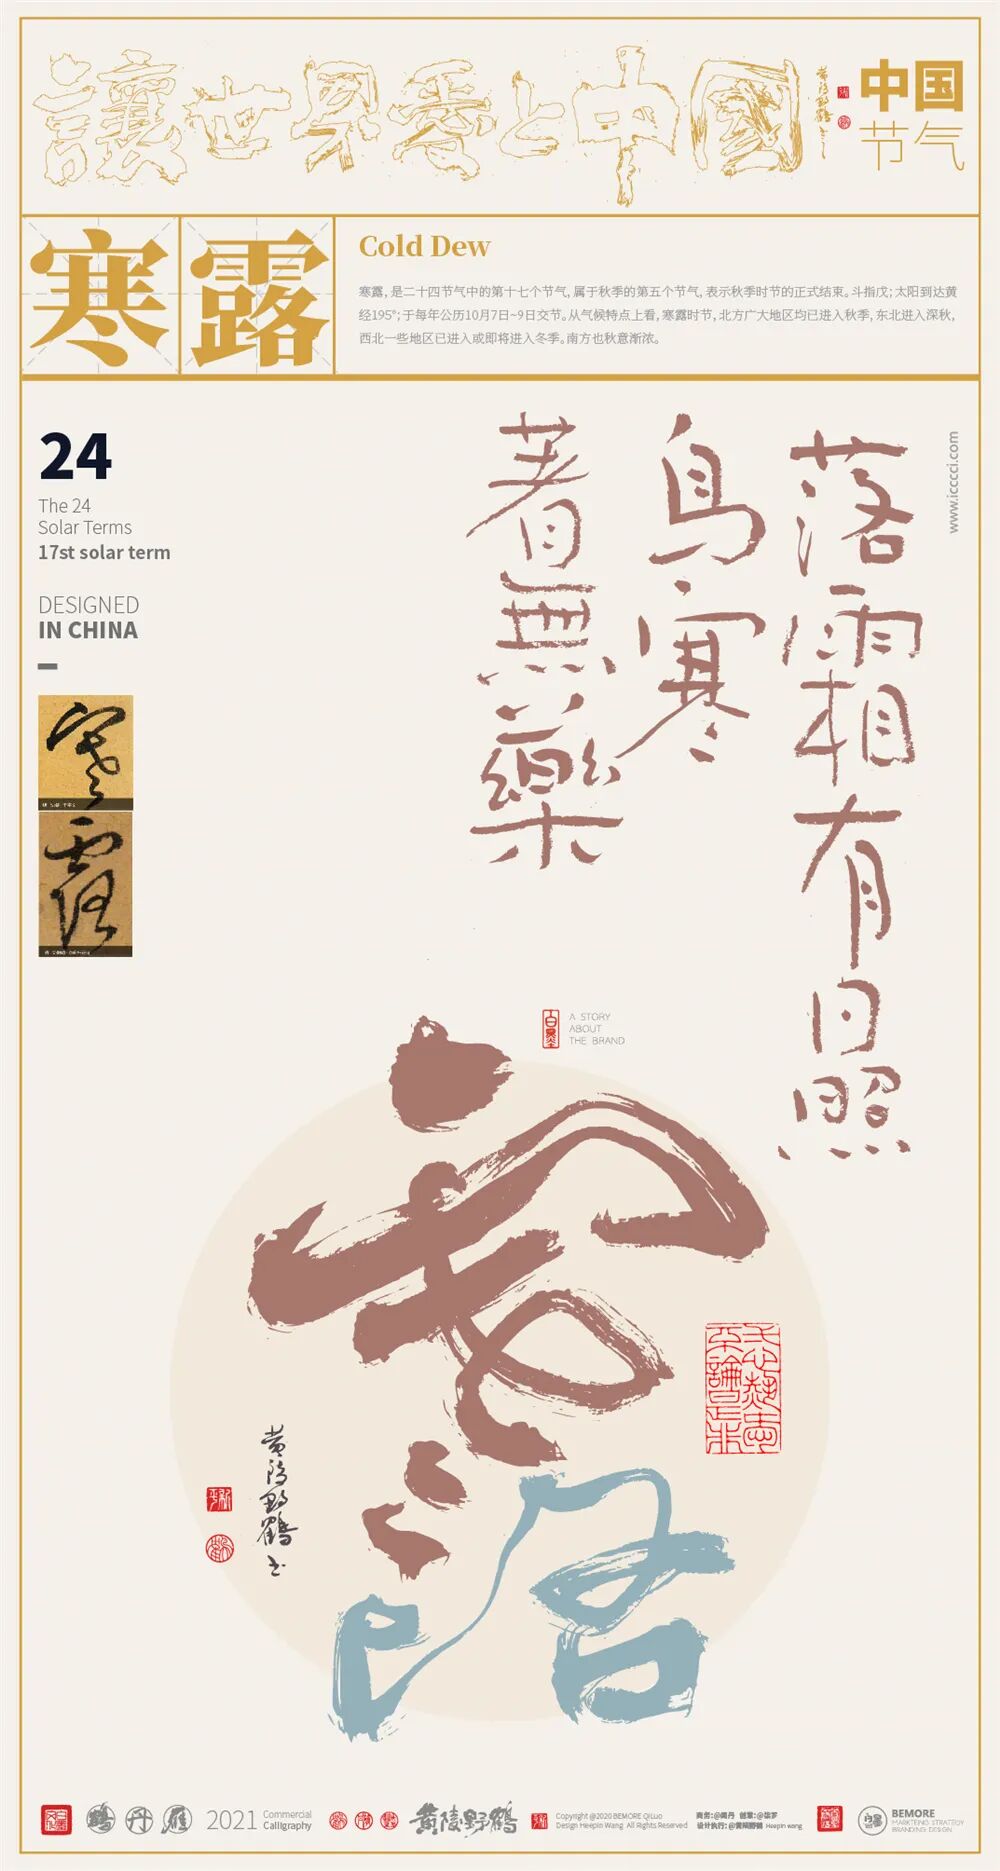 讓世界愛上中國
黄陵野鶴书
中国
节气
寒露
Cold Dew
寒露，是二十四节气中的第十七个节气，属于秋季的第五个节气，表示秋季时节的正式结束。斗指戊；太阳到达黄
经195°；于每年公历10月7日~9日交节。从气候特点上看，寒露时节，北方广大地区均已进入秋季，东北进入深秋，
西北一些地区已进入或即将进入冬季。南方也秋意渐浓。
24
The 24
Solar Terms
17st solar term
DESIGNED
IN CHINA
寒
露
www.icccci.com
落霜有日照
鳥寒
著無藥
A STORY
ABOUT
THE BRAND
寒
露
黄陵野鶴书
鶴
丹
雁
2021
Commercial
Calligraphy
黄陵野鶴
Copyright @2020 BEMORE QiLuo
Design Heepin Wang All Rights Reserved
商务:@阎丹 创意:@柒罗
设计执行:@黄陵野鹤 Heepin wang
BEMORE
MARKTEING STRATEDY
BRANDING DESIGN